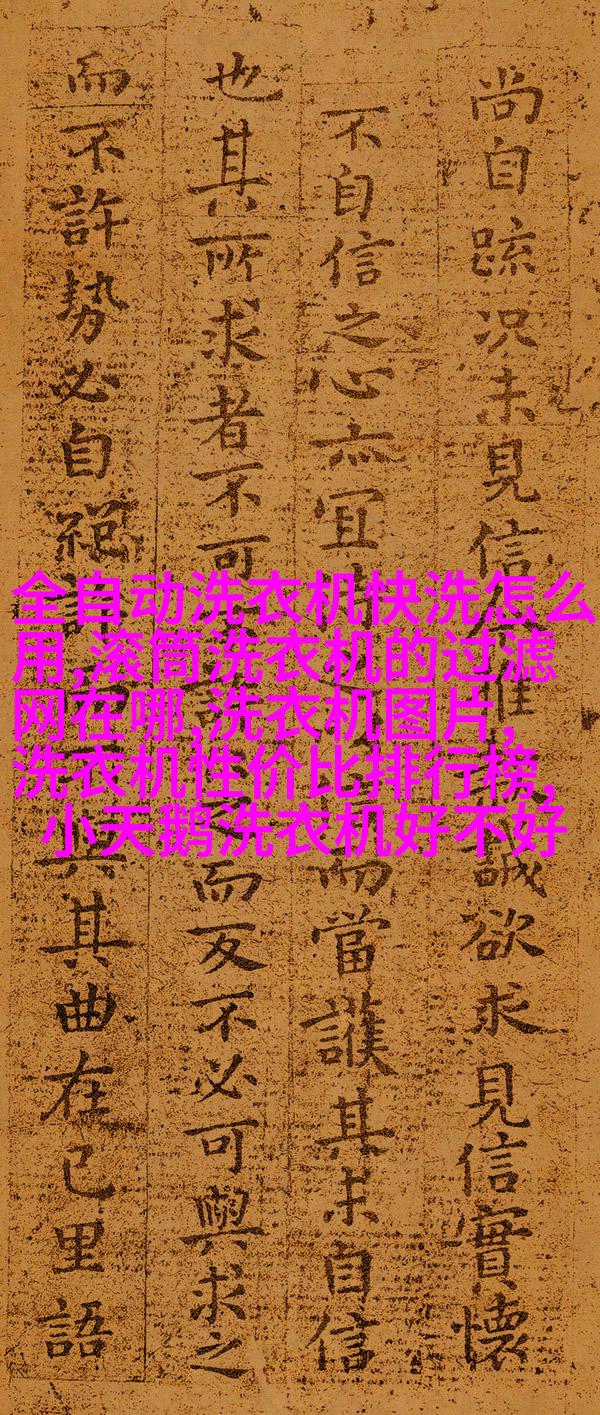 尚自疏况未見信誠欲求見信實懷
不自信之心亦宜而當護其未自信
也其所求者不可而反不必可與求之
而不許勢必自絕其曲在己里語
全自动洗衣机快洗怎么
用,滚筒洗衣机的过滤
网在哪,洗衣机图片,
洗衣机性价比排行榜,
小天鹅洗衣机好不好